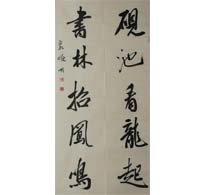 砚池看龍起
書林招鳳鳴